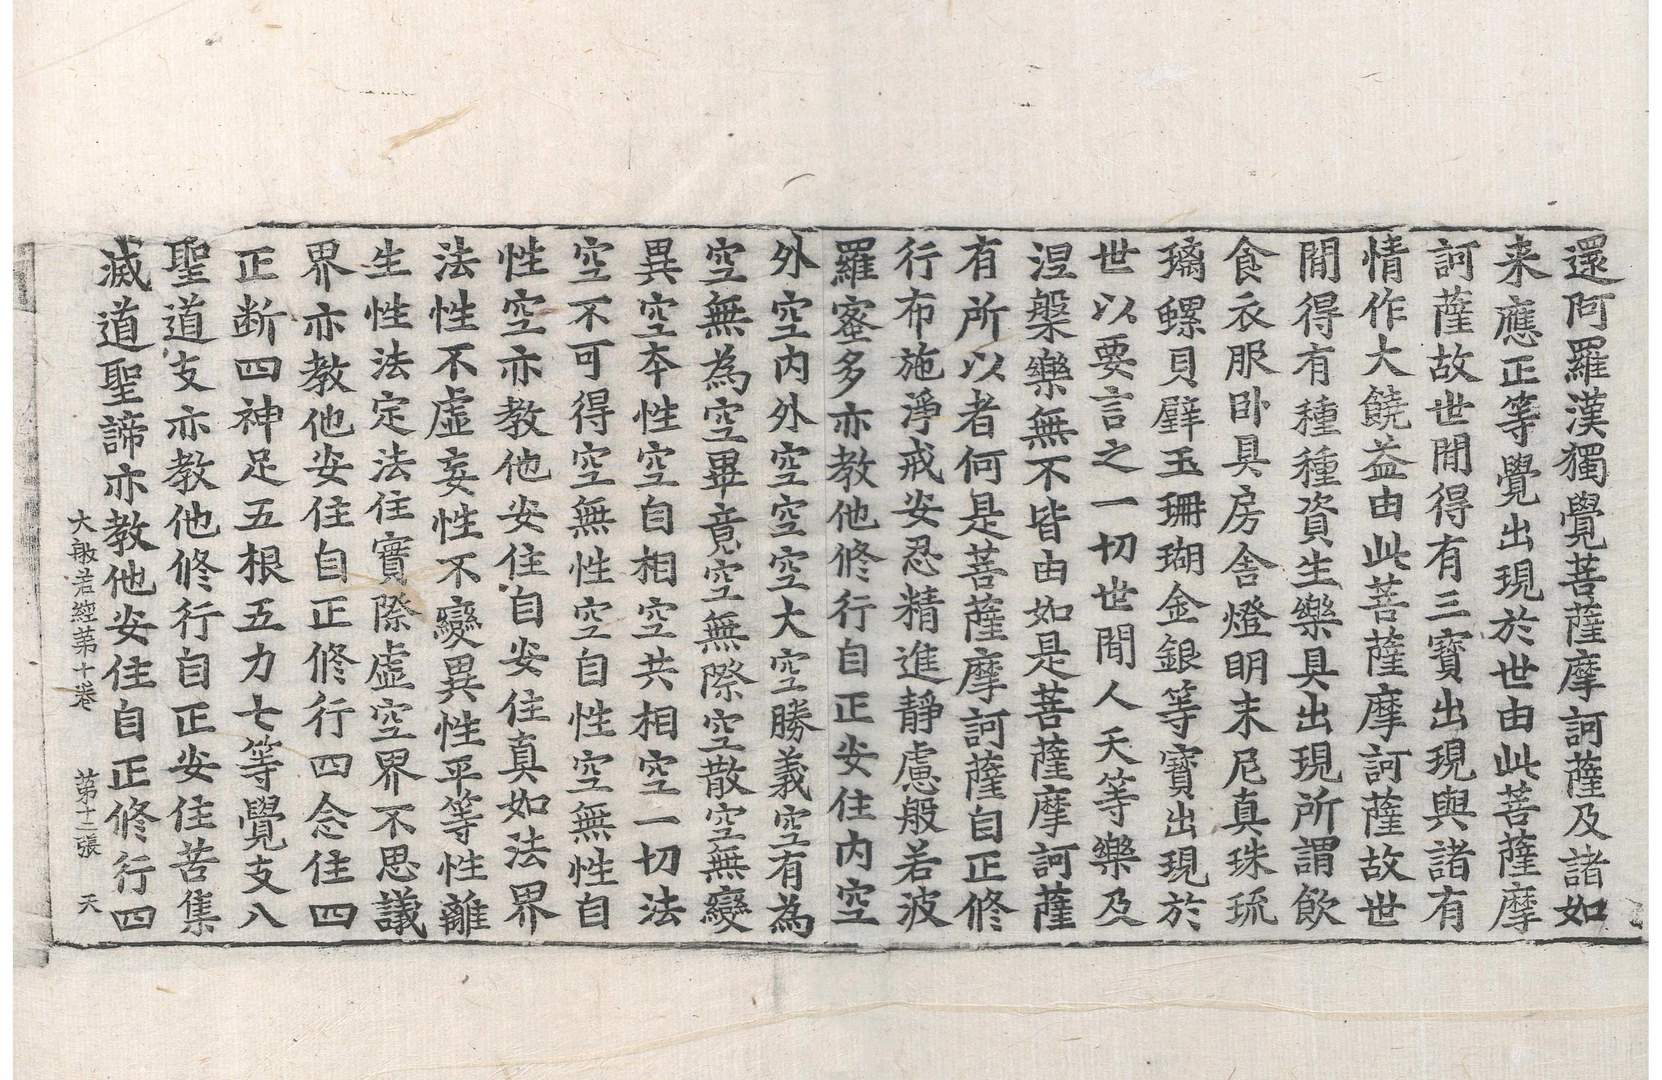 還阿羅漢獨覺菩薩摩訶薩及諸如
来應正等覺出現於世由此菩薩摩
訶薩故世間得有三寶出現與諸有
情作大饒益由此菩薩摩訶薩故世
間得有種種資生樂具出現所謂飲
食衣服卧具房舍燈明末尼真珠琉
璃螺貝璧玉珊瑚金銀等寶出現於
世以要言之一切世間人天等樂及
涅槃樂無不皆由如是菩薩摩訶薩
有所以者何是菩薩摩訶薩自正修
行布施淨戒安忍精進靜慮般若波
羅蜜多亦教他修行自正安住内空
外空内外空空空大空勝義空有為
空無為空畢竟空無際空散空無變
異空本性空自相空共相空一切法
空不可得空無性空自性空無性自
性空亦教他安住自安住真如法界
法性不虛妄性不變異性平等性離
生性法定法住實際虛空界不思議
界亦教他安住自正修行四念住四
正断四神足五根五力七等覺支八
聖道支亦教他修行自正安住苦集
滅道聖諦亦教他安住自正修行四
大般若經第十卷　第十二張　天